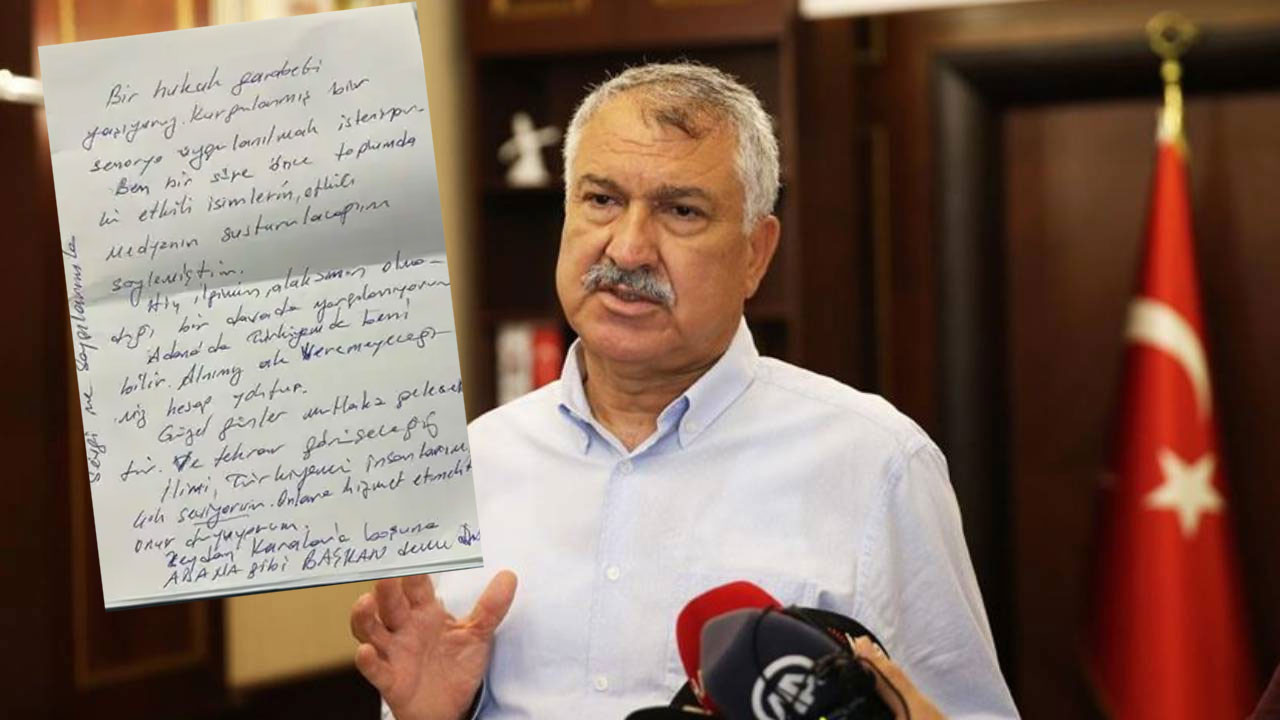 Bir hukuk garabeti
yaşıyoruz. Kurgulanmış bir
senaryo uygulanılmak isteniyor.
Ben bir süre önce toplumda
ki etkili isimlerin, etkili
medyanın susturulacağını
söylemiştim.
Hiç ilgimin, alakamın olma-
dığı, bir davada yargılanıyorum
Adana'da Türkiye'de beni
bilir. Alnımız ak veremeyeceği
miz hesap yoktur.
Güzel günler mutlaka gelecek
tir. Ve tekrar görüşeceğiz
İlimi, Türkiyemi insanlarımı
çok seviyorum. Onlara hizmet etmekten
onur duyuyorum.
Zeydan Karalar'a boşuna
ADANA gibi BAŞKAN
sevgi ve saygılarımla
AA